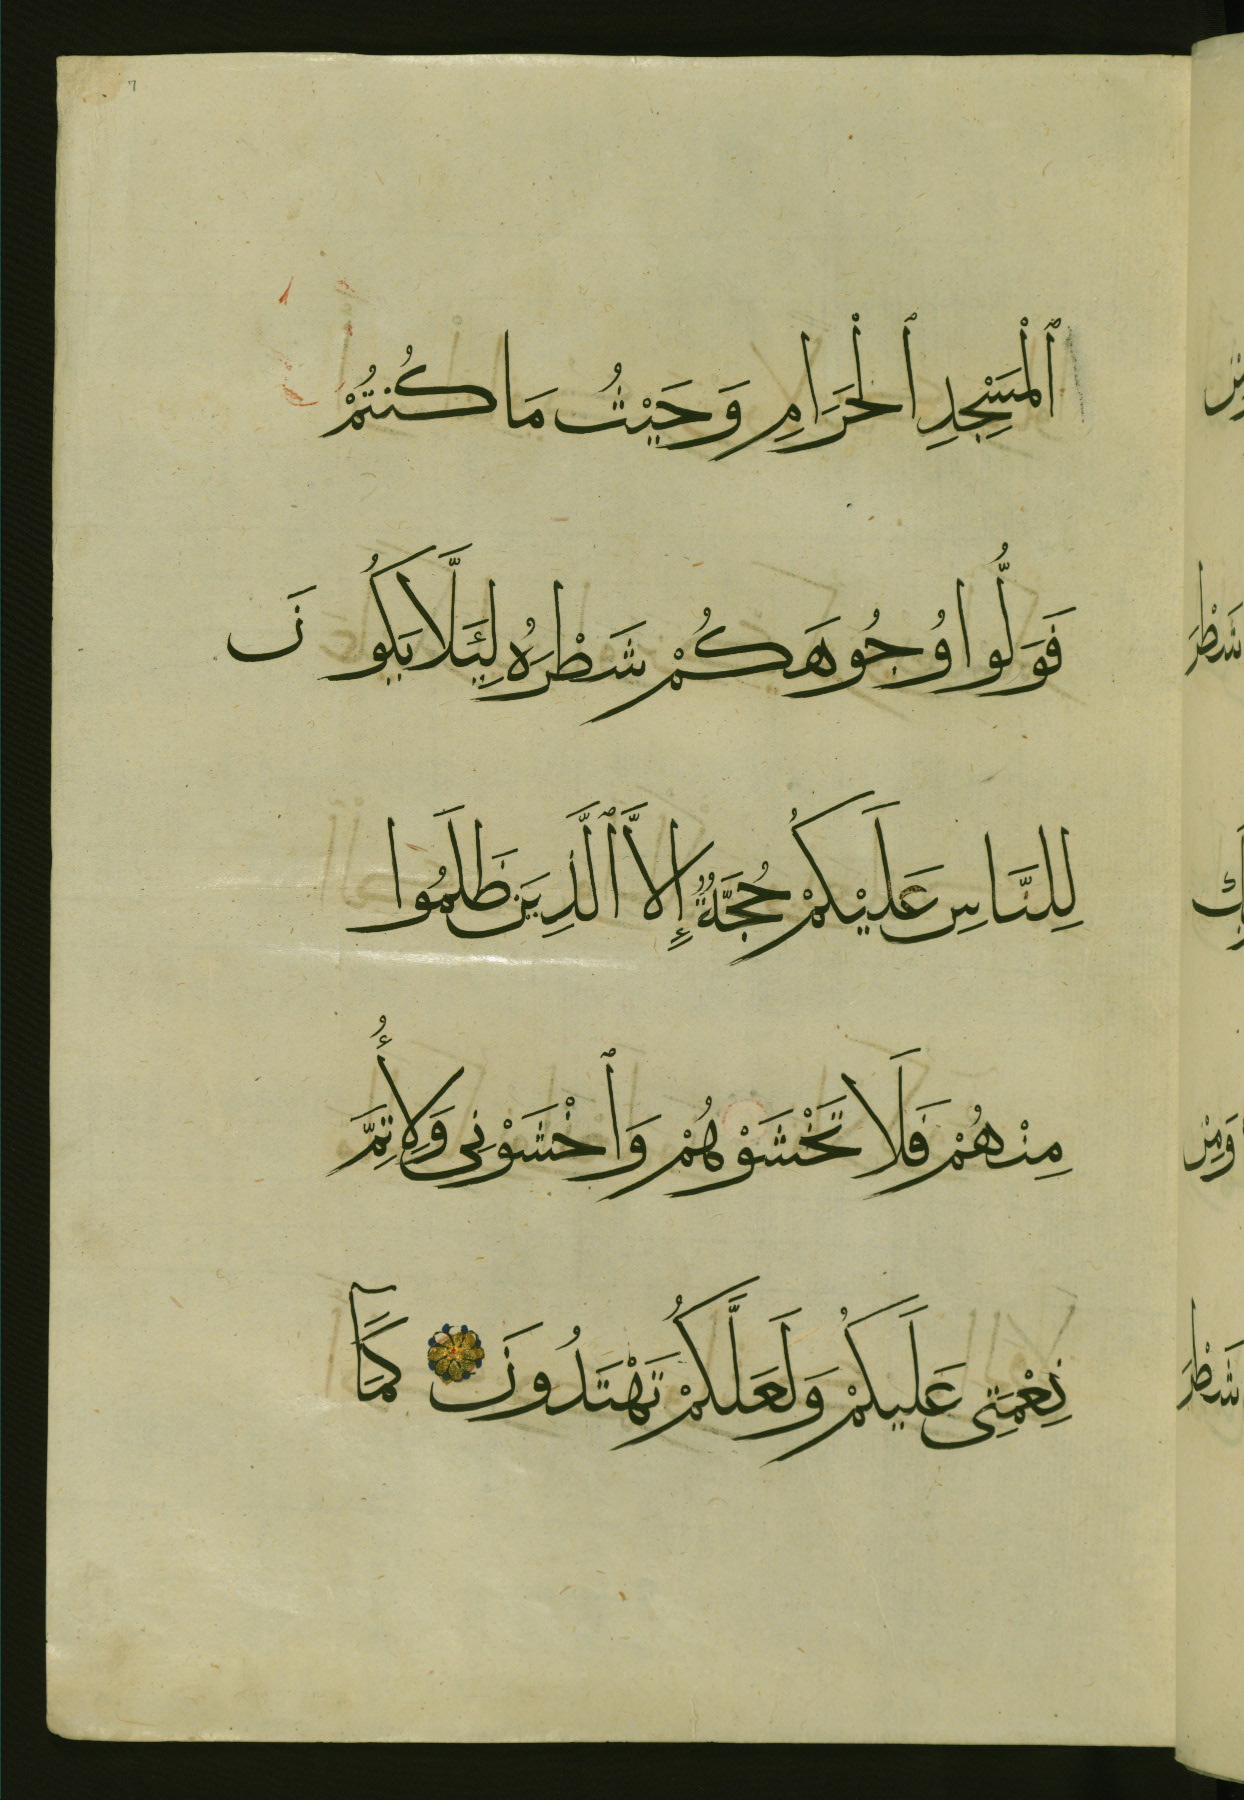 ٱلْمَسْجِدِ ٱلْحَرَامِ وَحَيْثُ مَا كُنتُمْ
فَوَلُّوا وُجُوهَكُمْ شَطْرَهُ لِئَلَّا يَكُونَ
لِلنَّاسِ عَلَيْكُمْ حُجَّةٌ إِلَّا ٱلَّذِينَ ظَلَمُوا
مِنْهُمْ فَلَا تَخْشَوْهُمْ وَٱخْشَوْنِى وَلِأُتِمَّ
نِعْمَتِى عَلَيكُمْ وَلَعَلَّكُمْ تَهْتَدُونَ كَمَآ